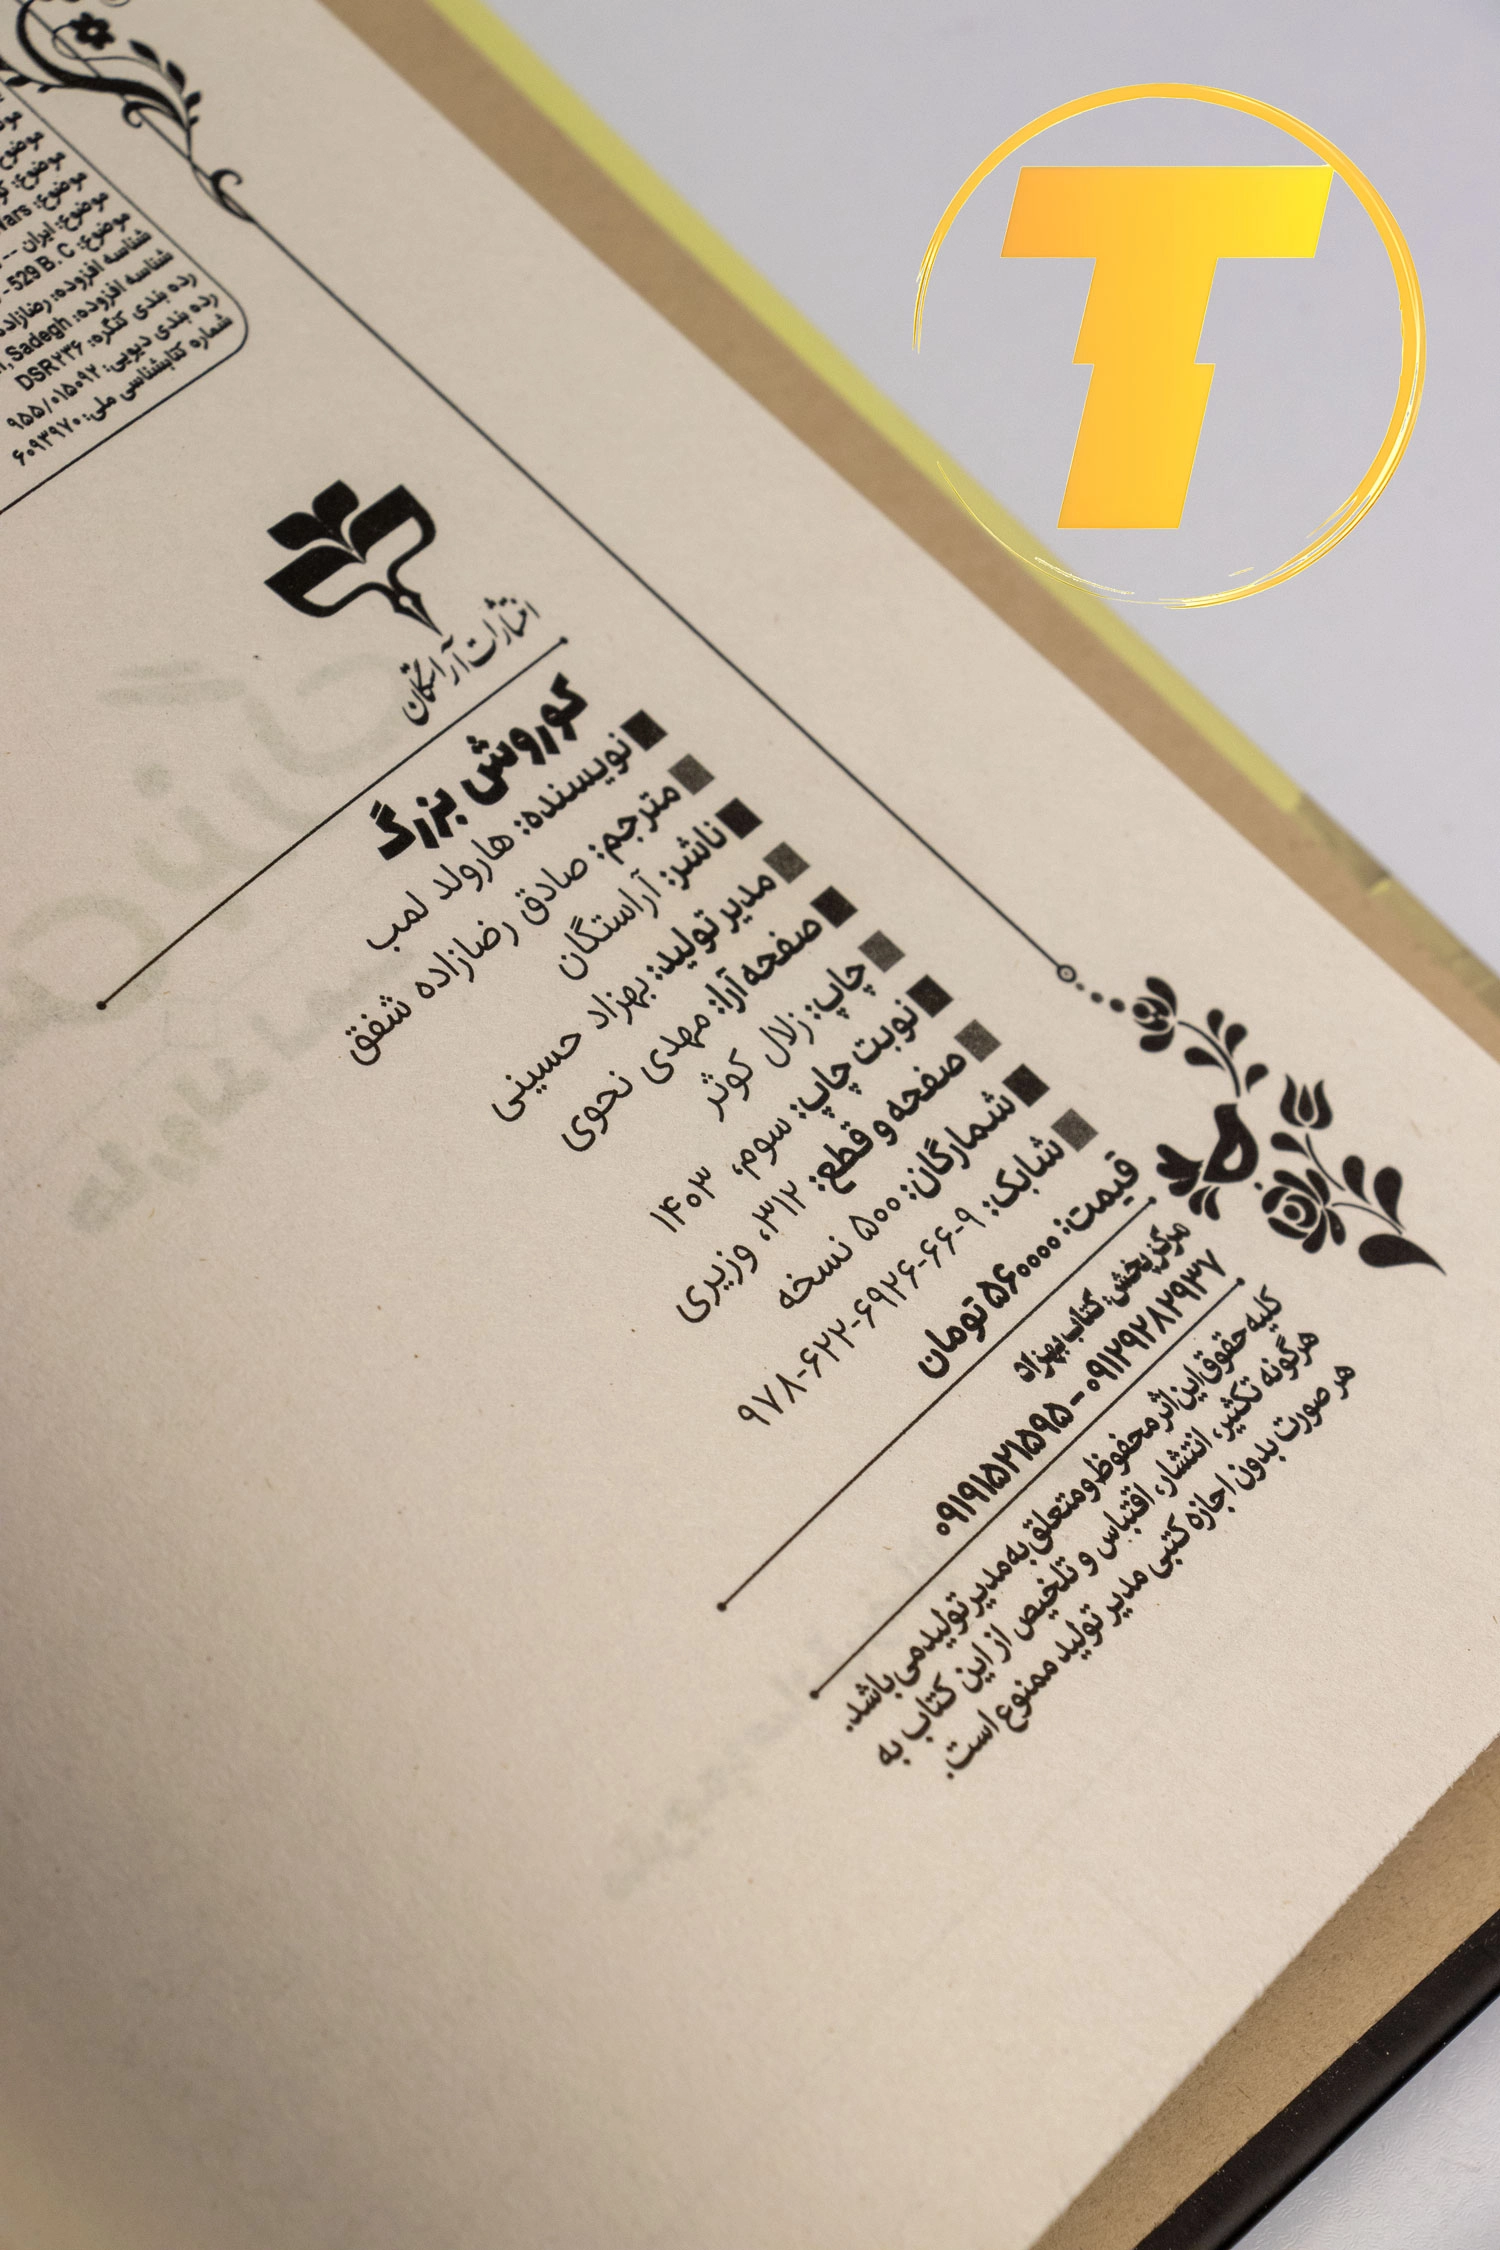 موضوع
موضوع:
موضوع: ایران --
موضوع: 529 B. C -
شناسه افزوده: رضازاده
شناسه افزوده: Sadegh,
رده بندی کنگره: DSR۲۳۶
رده بندی دیویی: ۹۵۵/۰۱۵۰۹۲
شماره کتابشناسی ملی: ۶۰۹۳۹۷۰
انتشارات آراستگان
کوروش بزرگ
نویسنده: هارولد لمب
مترجم: صادق رضازاده شفق
ناشر: آراستگان
مدیر تولید: بهزاد حسینی
صفحه آرا: مهدی نحوی
چاپ: زلال کوثر
نوبت چاپ: سوم، ۱۴۰۳
صفحه و قطع: ۳۱۲، وزیری
شمارگان: ۵۰۰ نسخه
شابک: ۹-۶۶-۶۹۲۶-۶۲۲-۹۷۸
قیمت: ۵۶۰۰۰۰ تومان
مرکز پخش: کتاب بهزاد
۰۹۱۹۱۵۲۱۵۹۵ - ۰۹۱۲۹۲۸۲۹۳۷
کلیه حقوق این اثر محفوظ و متعلق به مدیر تولید می باشد.
هرگونه تکثیر، انتشار، اقتباس و تلخیص از این کتاب به
هر صورت بدون اجازه کتبی مدیر تولید ممنوع است.
T